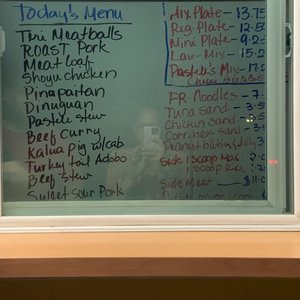 Today's Menu
Teri Meatballs
ROAST Pork
Meat loaf
Shoyu chicken
Pinapaitan
Dinuguan
Pastele stew
Beef Curry
Kalua pig w/cab
Turkey tail Adobo
Beef stew
Sweet sour Pork
Plate - 13.75
Reg. Plate -
Mini Plate -
Lau-Mix -
Pastele's Mix -
FR. Noodles -
Tuna sand -
Chicken sand -
Corn beef sand -
Peanut butter/Jelly
Side 1 scoop Mac
1 scoop Rice
Side Meat